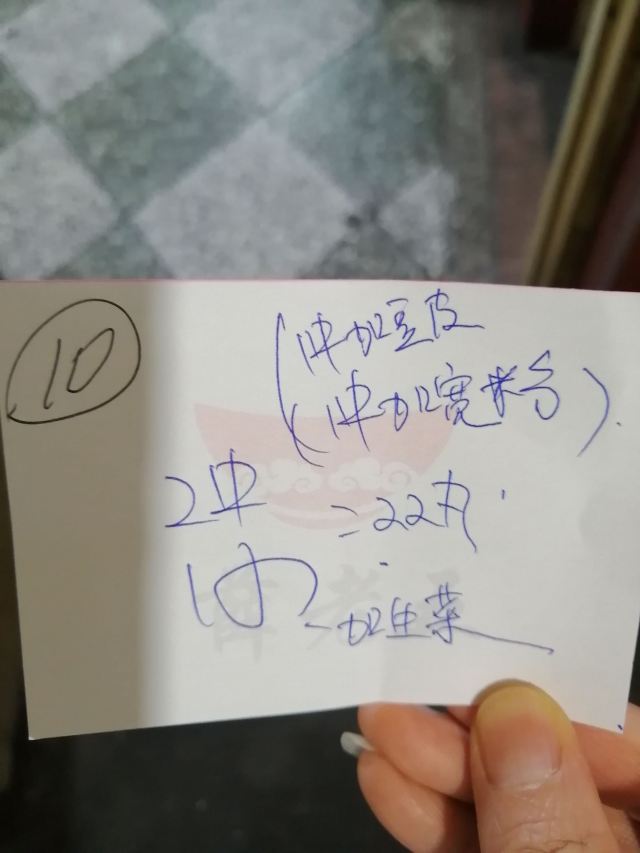 10
(1中加豆皮
(1中加宽粉)
2中 =22丸
1小-加生菜